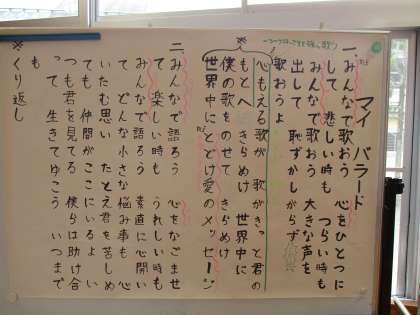 マイ バラード
一、みんなで歌おう 心をひとつに
して 悲しい時も つらい時も
みんなで歌おう 大きな声を
出して 恥ずかしがらず
歌おうよ
心もえる歌が 歌がきっと君の
もとへ きらめけ 世界中に
僕の歌をのせて きらめけ
世界中に とどけ愛のメッセージ
二、みんなで語ろう 心をなごませ
て 楽しい時も うれしい時も
みんなで語ろう 素直に心開い
て どんな小さな悩み事も 心
いたむ思い たとえ君を苦しめ
ても 仲間がここにいるよ い
つも君を見てる 僕らは助け合
って 生きてゆこう いつまで
も
※くり返し